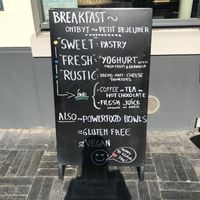 BREAKFAST~
ONTBYT ~ PETIT DEJEUNER
SWEET: PASTRY
FRESH: YOGHURT WITH
FRESH FRUIT & GRANOLA
RUSTIC: BREAD-HAM-CHEESE
TOMATOES
AND
- COFFEE OR TEA OR
HOT CHOCOLATE
- FRESH JUICE
ORANGE OR APPLE
ALSO ~ POWERFOOD BOWLS
~ GLUTEN FREE
~ VEGAN